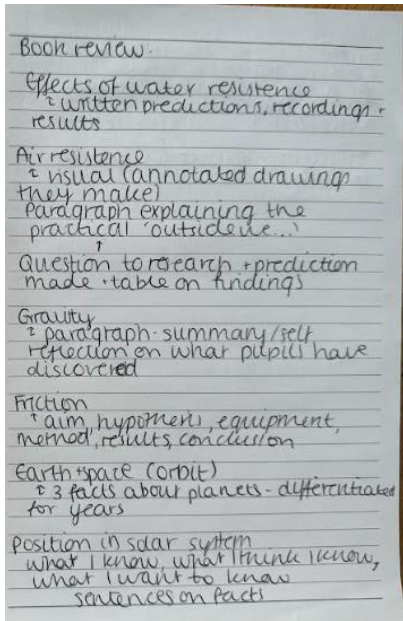 Book review.
Effects of water resistence
↳ written predictions, recordings +
results
Air resistence
↳ visual (annotated drawings
they make)
Paragraph explaining the
practical 'outside we...'
↑
Question to research + prediction
made + table on findings
Gravity
↳ paragraph - summary/self
reflection on what pupils have
discovered
Friction
↳ aim, hypothesis, equipment,
method, results, conclusion
Earth + space (orbit)
↳ 3 facts about planets - differentiated
for years
Position in solar system
what I know, what I think I know,
what I want to know
sentences on facts